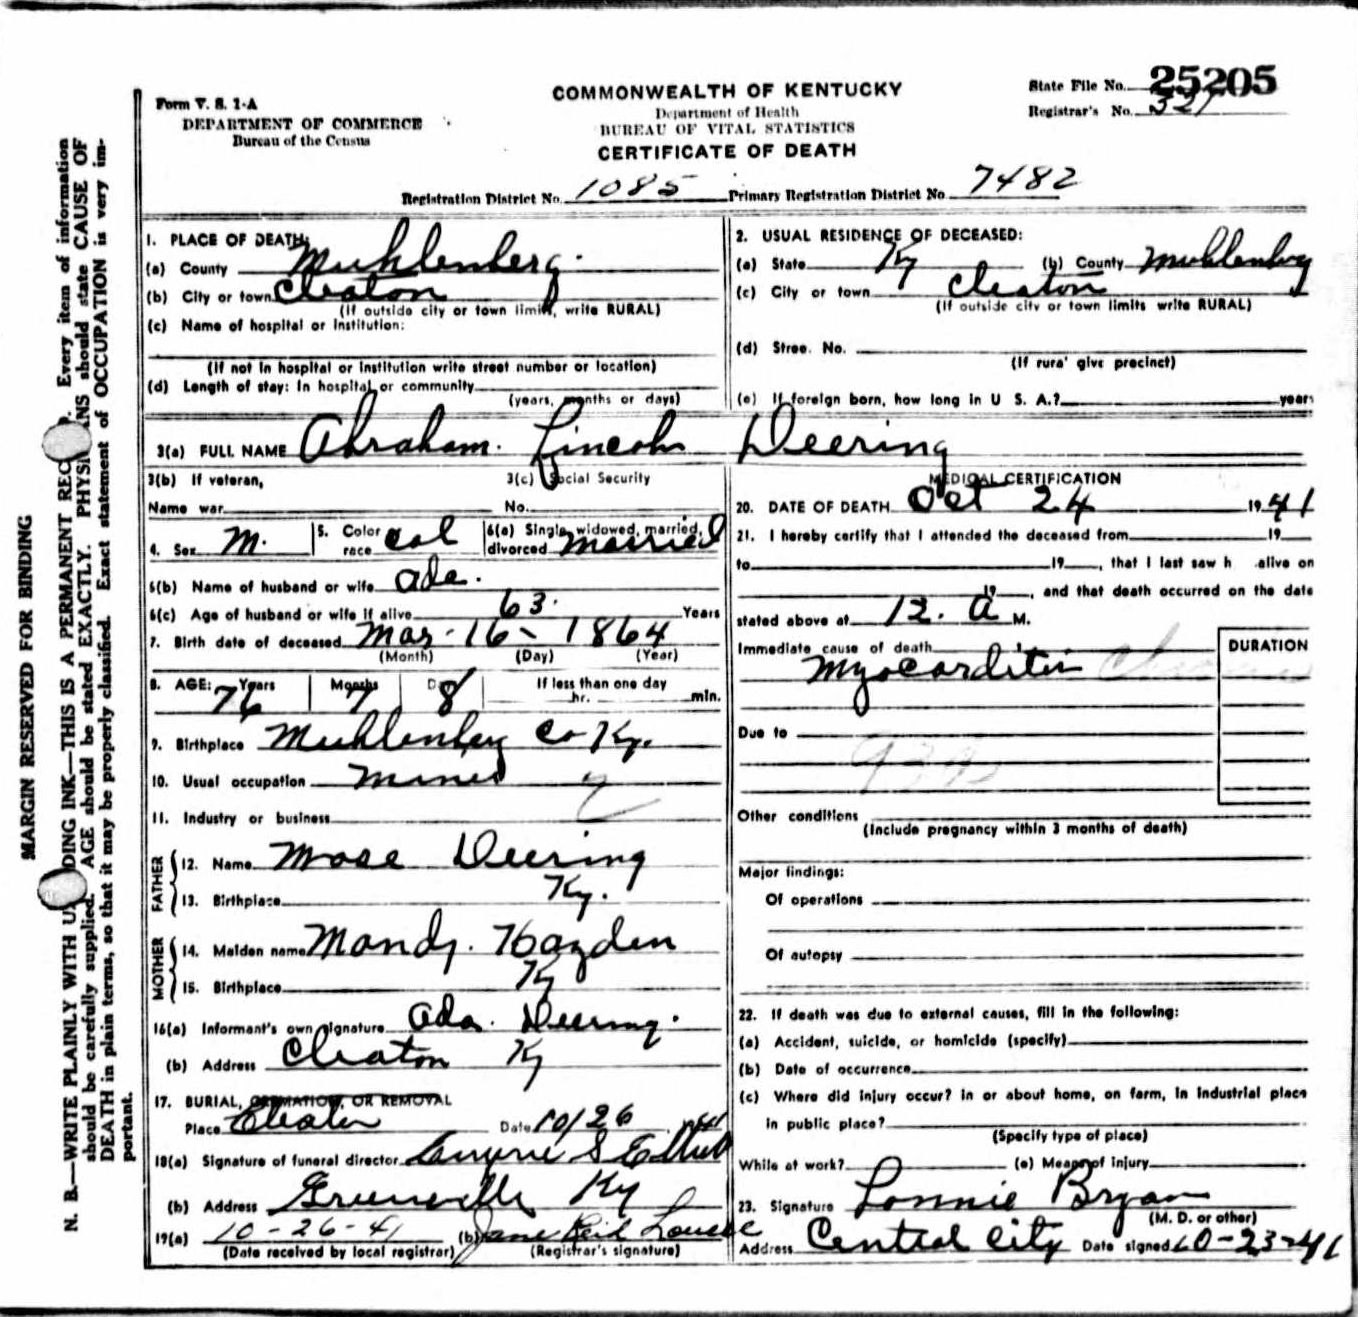 Form V. S. 1-A
DEPARTMENT OF COMMERCE
Bureau of the Census
COMMONWEALTH OF KENTUCKY
Department of Health
BUREAU OF VITAL STATISTICS
CERTIFICATE OF DEATH
State File No. 25205
Registrar's No. 321
Registration District No. 1085 Primary Registration District No. 7482
MARGIN RESERVED FOR BINDING
N. B.—WRITE PLAINLY WITH DING INK—THIS IS A PERMANENT REC Every item of information
should be carefully supplied. AGE should be stated EXACTLY. PHYSI ANS should state CAUSE OF
DEATH in plain terms, so that it may be properly classified. Exact statement of OCCUPATION is very im-
portant.
1. PLACE OF DEATH:
(a) County Muhlenberg.
(b) City or town Cleaton
(If outside city or town limits, write RURAL)
(c) Name of hospital or Institution:
(If not in hospital or institution write street number or location)
(d) Length of stay: In hospital or community
(years, months or days)
2. USUAL RESIDENCE OF DECEASED:
(a) State Ky (b) County Muhlenberg
(c) City or town Cleaton
(If outside city or town limits write RURAL)
(d) Stree. No.
(If rura' give precinct)
(e) If foreign born, how long in U S. A.? years
3(a) FULL NAME Abraham. Lincoln Deering
3(b) If veteran,
Name war
3(c) Social Security
No.
4. Sex M. 5. Color race Col 6(a) Single, widowed, married, divorced Married
6(b) Name of husband or wife Ada.
6(c) Age of husband or wife if alive 63 Years
7. Birth date of deceased Mar - 16 - 1864
(Month) (Day) (Year)
8. AGE: Years 76 Months 7 D 8 If less than one day
hr. min.
9. Birthplace Muhlenberg Co Ky.
10. Usual occupation Miner
11. Industry or business
FATHER
12. Name Mose Deering
13. Birthplace Ky.
MOTHER
14. Maiden name Mandy. Hayden
15. Birthplace Ky
16(a) Informant's own signature Ada. Deering.
(b) Address Cleaton Ky
17. BURIAL, CREMATION, OR REMOVAL
Place Cleaton Date 10/26
18(a) Signature of funeral director
(b) Address Greenville Ky
19(a) 10-26-41 (b) Jane Reid
(Date received by local registrar) (Registrar's signature)
MEDICAL CERTIFICATION
20. DATE OF DEATH Oct 24 1941
21. I hereby certify that I attended the deceased from 19
to 19 , that I last saw h alive on
19 , and that death occurred on the date
stated above at 12. A M.
Immediate cause of death
Myocarditis
DURATION
Due to
Other conditions
(Include pregnancy within 3 months of death)
Major findings:
Of operations
Of autopsy
22. If death was due to external causes, fill in the following:
(a) Accident, suicide, or homicide (specify)
(b) Date of occurrence
(c) Where did injury occur? In or about home, on farm, in industrial place
in public place?
(Specify type of place)
While at work? (e) Means of injury
23. Signature Lonnie Bryan
(M. D. or other)
Address Central City Date signed 10-23-41